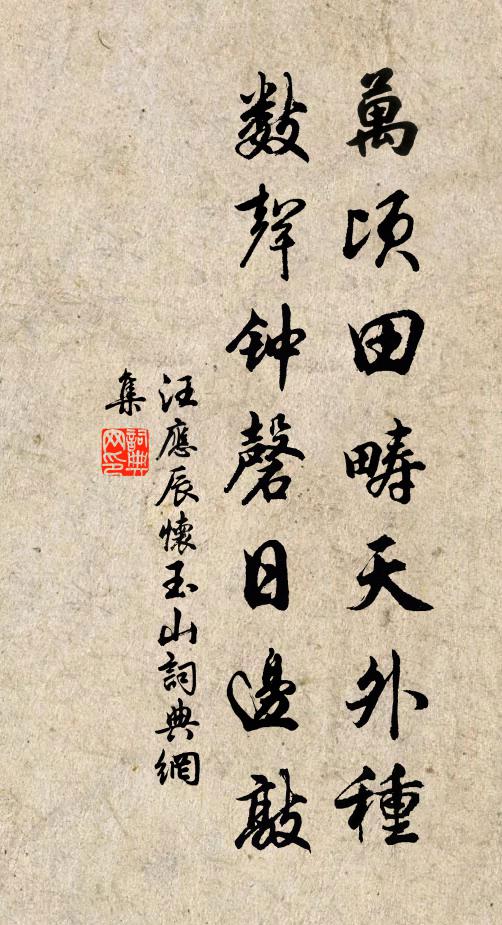 萬頃田疇天外種
数聲钟磬日邊敲
汪應辰懷玉山詞典網
集
詞典
网印